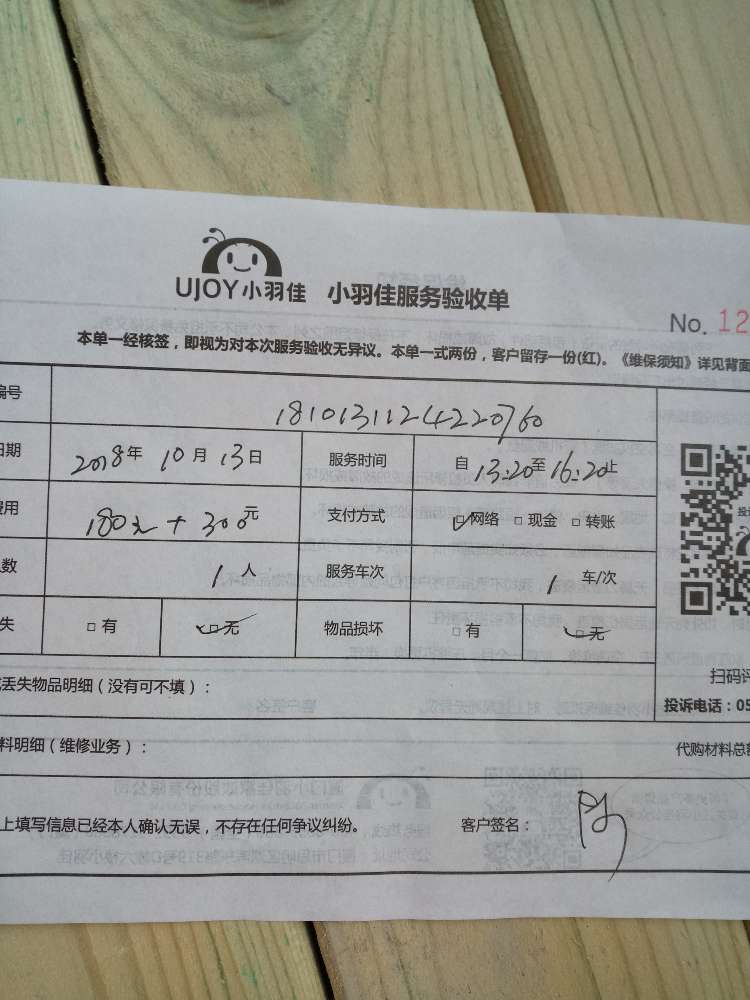 UJOY小羽佳 小羽佳服务验收单
No. 12
本单一经核签，即视为对本次服务验收无异议。本单一式两份，客户留存一份(红)。《维保须知》详见背面
编号 1810131124220760
日期 2018年 10月 13日 服务时间 自 13:20至16:20止
费用 180元+300元 支付方式 网络 现金 转账
数 1人 服务车次 1 车/次
失 有 无 物品损坏 有 无
丢失物品明细（没有可不填）：
扫码评
投诉电话：05
料明细（维修业务）：
代购材料总额
上填写信息已经本人确认无误，不存在任何争议纠纷。 客户签名：